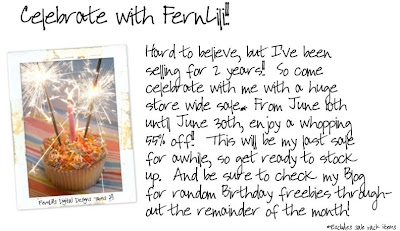 Celebrate with FernLili!!
Hard to believe, but I've been
selling for 2 years!! So come
celebrate with me with a huge
store wide sale* From June 18th
until June 30th, enjoy a whopping
55% off!! This will be my last sale
for awhile, so get ready to stock
up. And be sure to check my Blog
for random Birthday freebies through-
out the remainder of the month!
FernLili's Digital Designs Turns 2!
*Excludes sale rack items